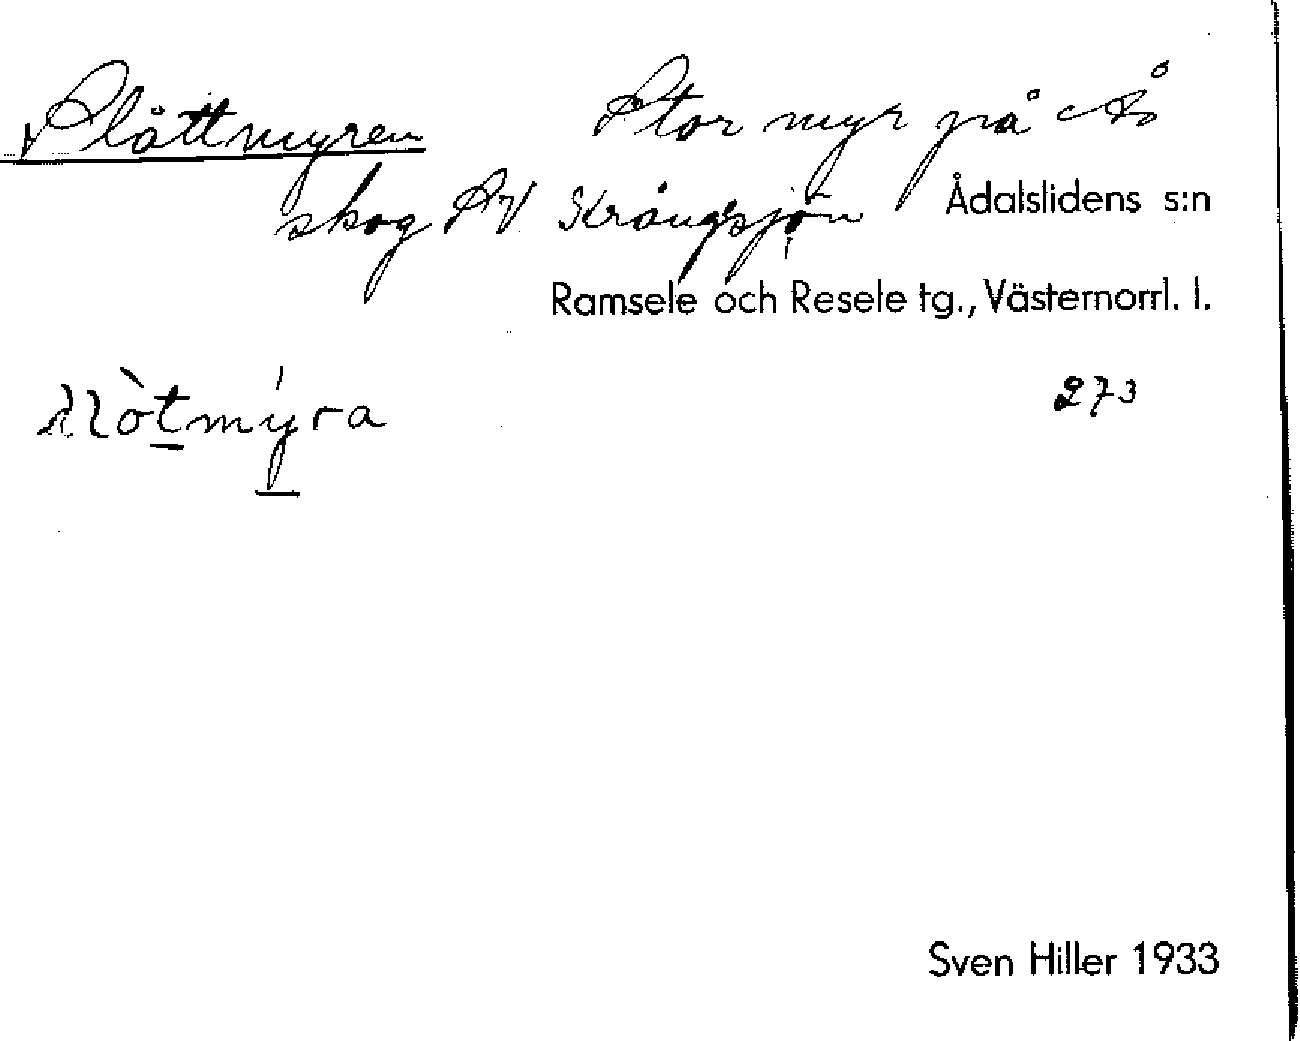 Slåttmyren Stor myr på Ås
skog SV Krångsjön Ådalslidens s:n
Ramsele och Resele tg., Västernorrl. l.
273
Sven Hiller 1933